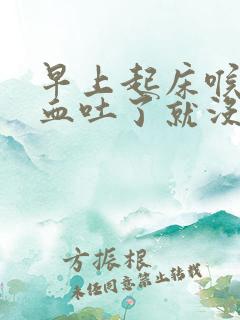 早上起床喉
血吐了就没
方振根
未经同意禁止转载